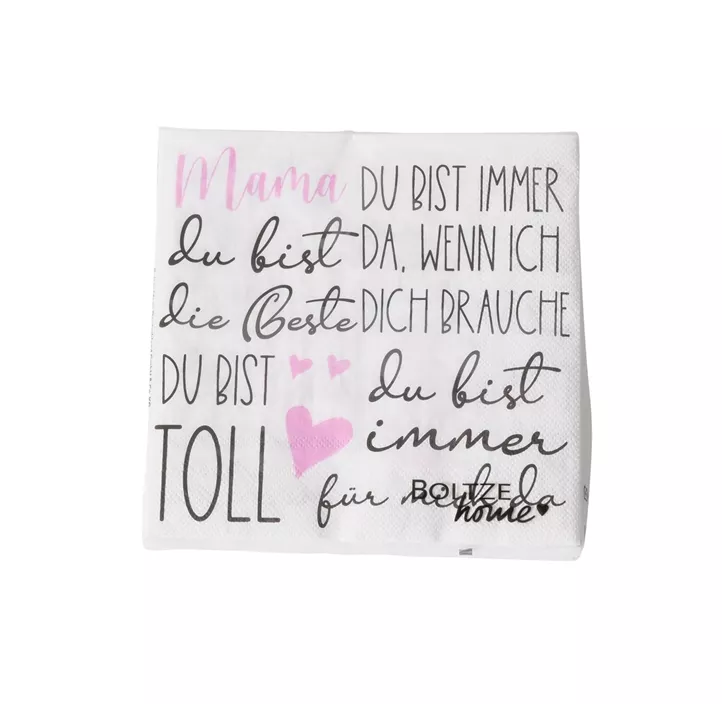 Mama
du bist
die Beste
DU BIST IMMER
DA, WENN ICH
DICH BRAUCHE
DU BIST
TOLL
du bist
immer
für mich da
BOLTZE
home